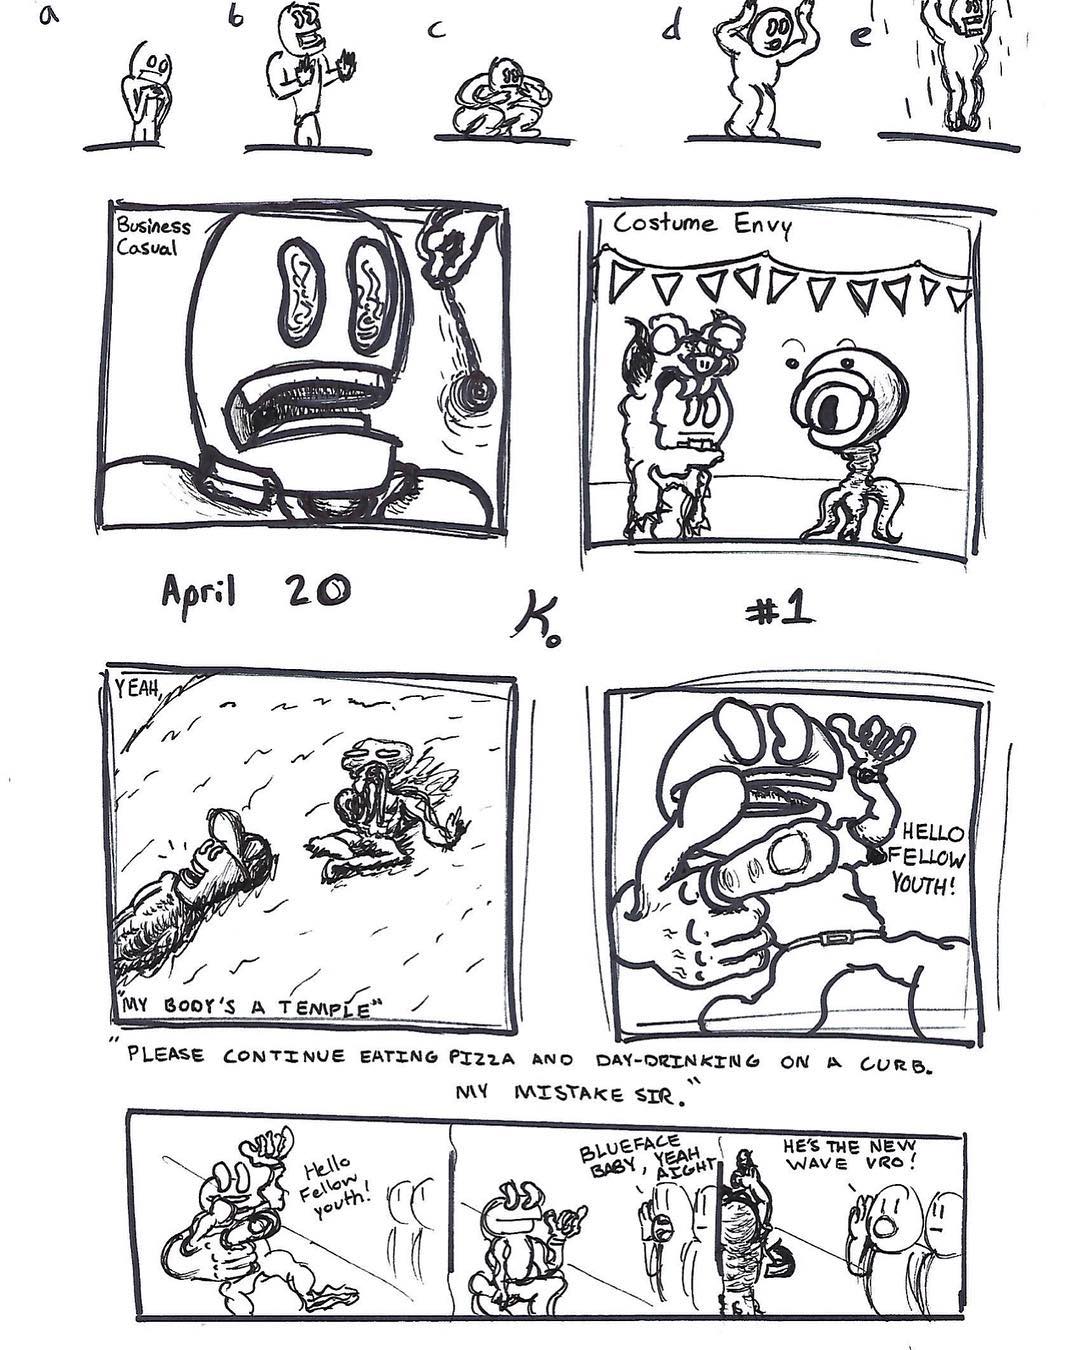 a
b
c
d
e
Business
Casual
Costume Envy
April 20
K.
#1
YEAH,
"MY BODY'S A TEMPLE"
HELLO
FELLOW
YOUTH!
"PLEASE CONTINUE EATING PIZZA AND DAY-DRINKING ON A CURB.
MY MISTAKE SIR."
Hello
Fellow
youth!
BLUEFACE
BABY, YEAH
AIGHT
HE'S THE NEW
WAVE VRO!